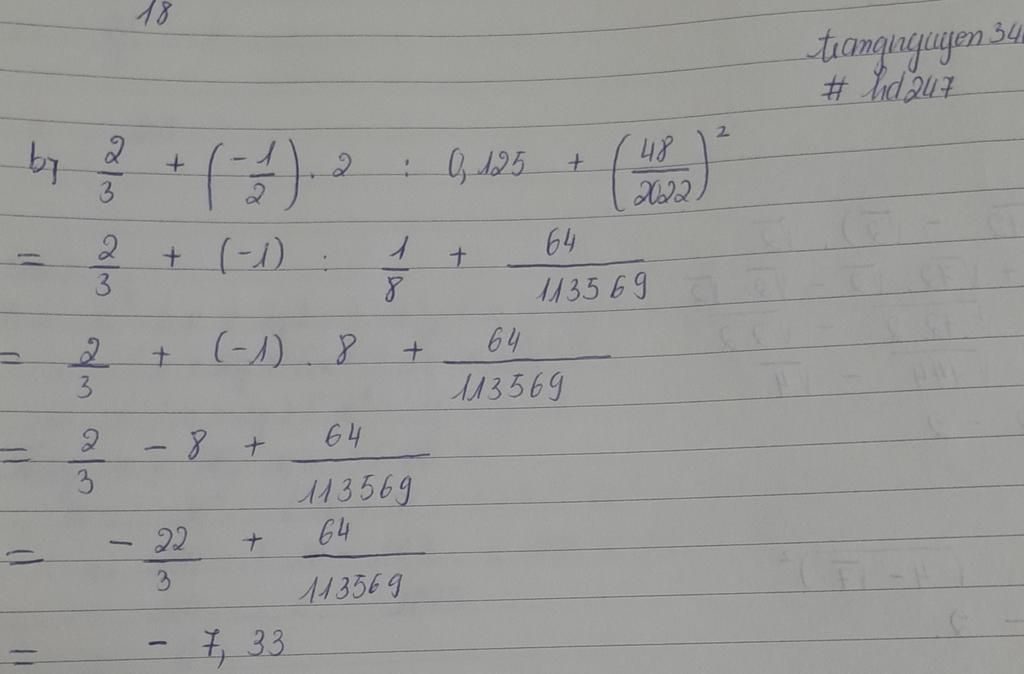 18
trangnguyen34
# hd247
b, 2/3 + (-1/2) . 2 : 0,125 + (48/2022)²
= 2/3 + (-1) : 1/8 + 64/113569
= 2/3 + (-1) . 8 + 64/113569
= 2/3 - 8 + 64/113569
= - 22/3 + 64/113569
= - 7,33